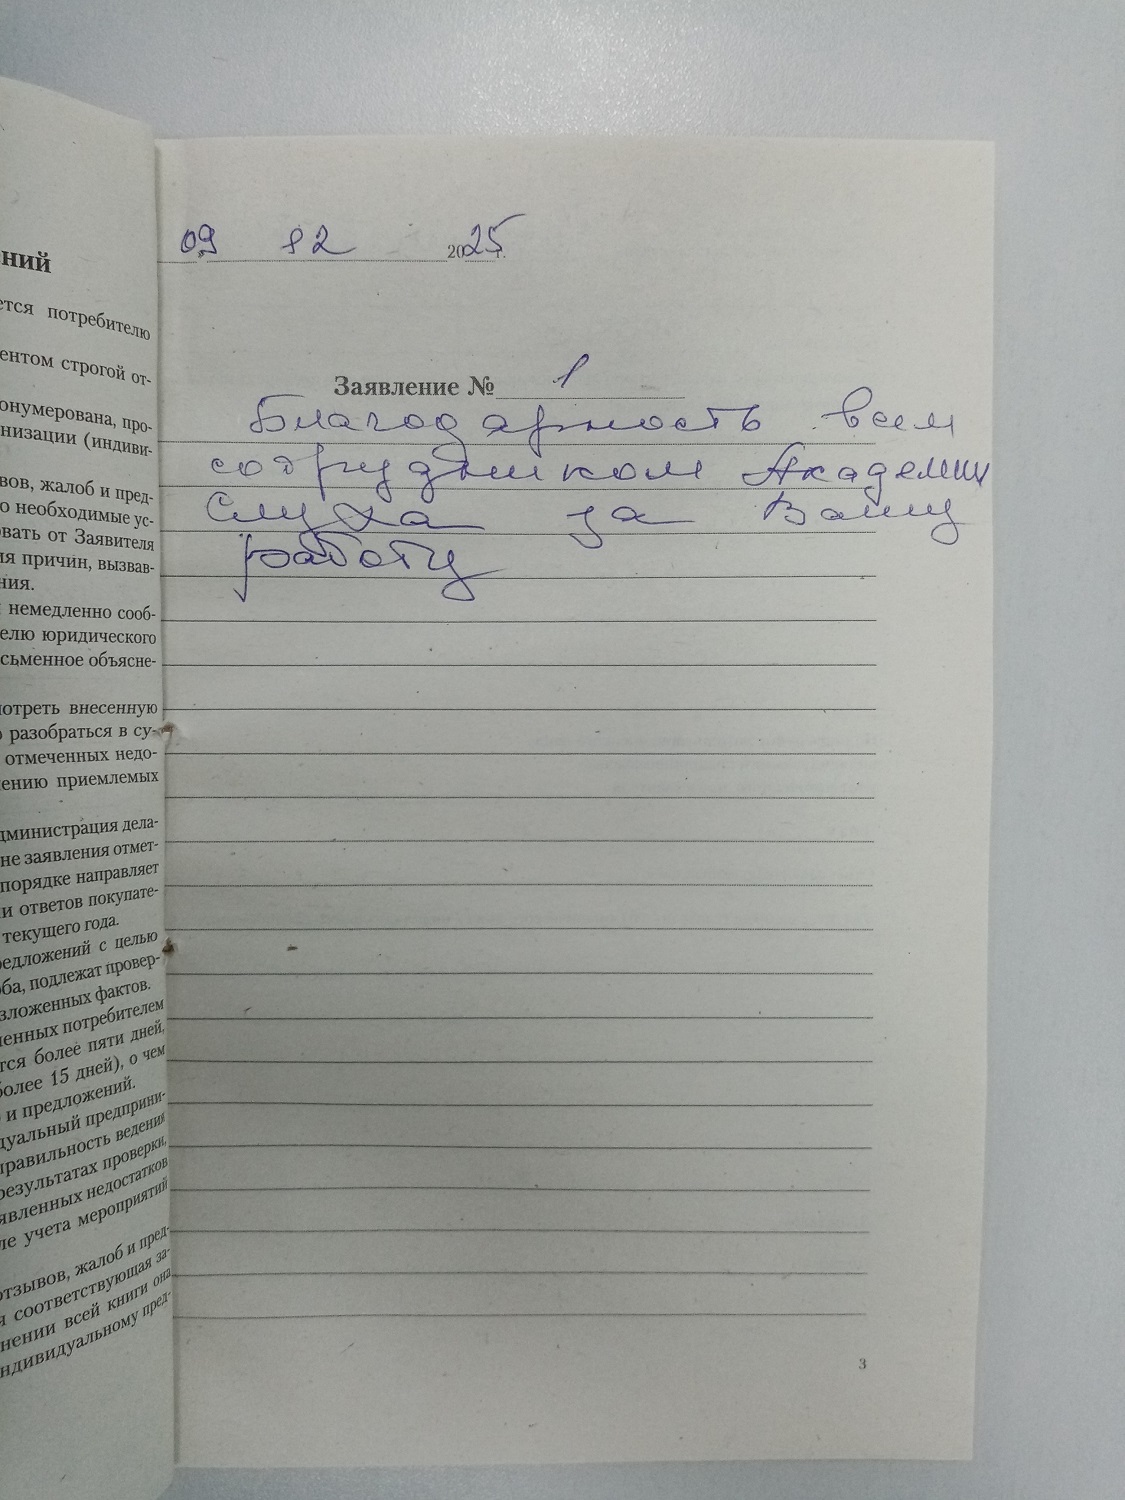 ний
ется потребителю
ентом строгой от-
онумерована, про-
низации (индиви-
вов, жалоб и пред-
о необходимые ус-
овать от Заявителя
ия причин, вызвав-
ния.
немедленно сооб-
елю юридического
сьменное объясне-
отреть внесенную
о разобраться в су-
отмеченных недо-
ению приемлемых
дминистрация дела-
не заявления отмет-
порядке направляет
и ответов покупате-
текущего года.
редложений с целью
оба, подлежат провер-
зложенных фактов.
ленных потребителем
тся более пяти дней,
более 15 дней), о чем
и предложений.
дуальный предприни-
правильность ведения
результатах проверки,
явленных недостатков
ле учета мероприятий
отзывов, жалоб и пред-
я соответствующая за-
нении всей книги она
ндивидуальному пред-
09 12 2025 г.
Заявление № 1
Благодарность всем
сотрудником Академии
Слуха за Вашу
работу
3